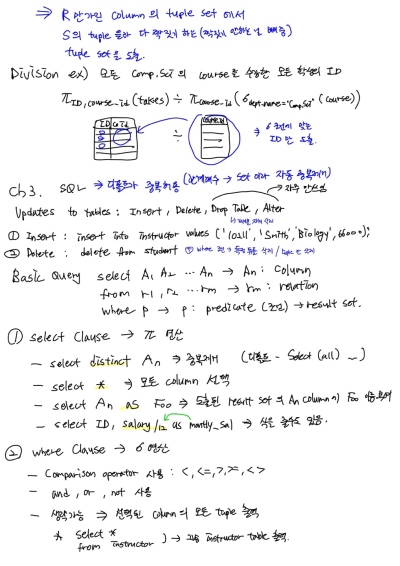 → R 만 가진 column 의 tuple set 에서
S의 tuple 들과 다 짝짓게 하는 (짝짓게 안되는 건 빼줌)
tuple set을 도출.
Division ex) 모든 Comp.Sci 의 course를 수강한 모든 학생의 ID
π ID, course_id (takes) ÷ π course_id (σ dept_name="Comp.Sci" (course))
ID C_id
÷
→ 6 조건이 맞는 ID 만 도출.
Ch3. SQL → 디폴트가 중복허용 (관계대수 → set 이라 자동 중복제거)
→ 자주 안쓰임
Updates to tables : Insert, Delete, Drop Table, Alter
① Insert : insert into instructor values ('10211', 'Smith', 'Biology', 66000);
② Delete : delete from student
Basic Query select A1, A2 ... An → An : column
from r1, r2 ... rm → rm : relation
where p → p : predicate (조건) → result set.
① select Clause → π 연산
- select distinct An → 중복제거 (디폴트 - select (all) ~)
- select * → 모든 column 선택
- select An as Foo → 도출된 result set의 An column이 Foo
- select ID, salary/12 as montly_sal → 식은 출력도 있음.
② where Clause → σ 연산
- Comparison operator 사용 : <, <=, >, >=, <>
- and, or, not 사용
- 생략가능 → 선택된 column의 모든 tuple 출력
* select *
from instructor ) → 그냥 instructor table 출력.